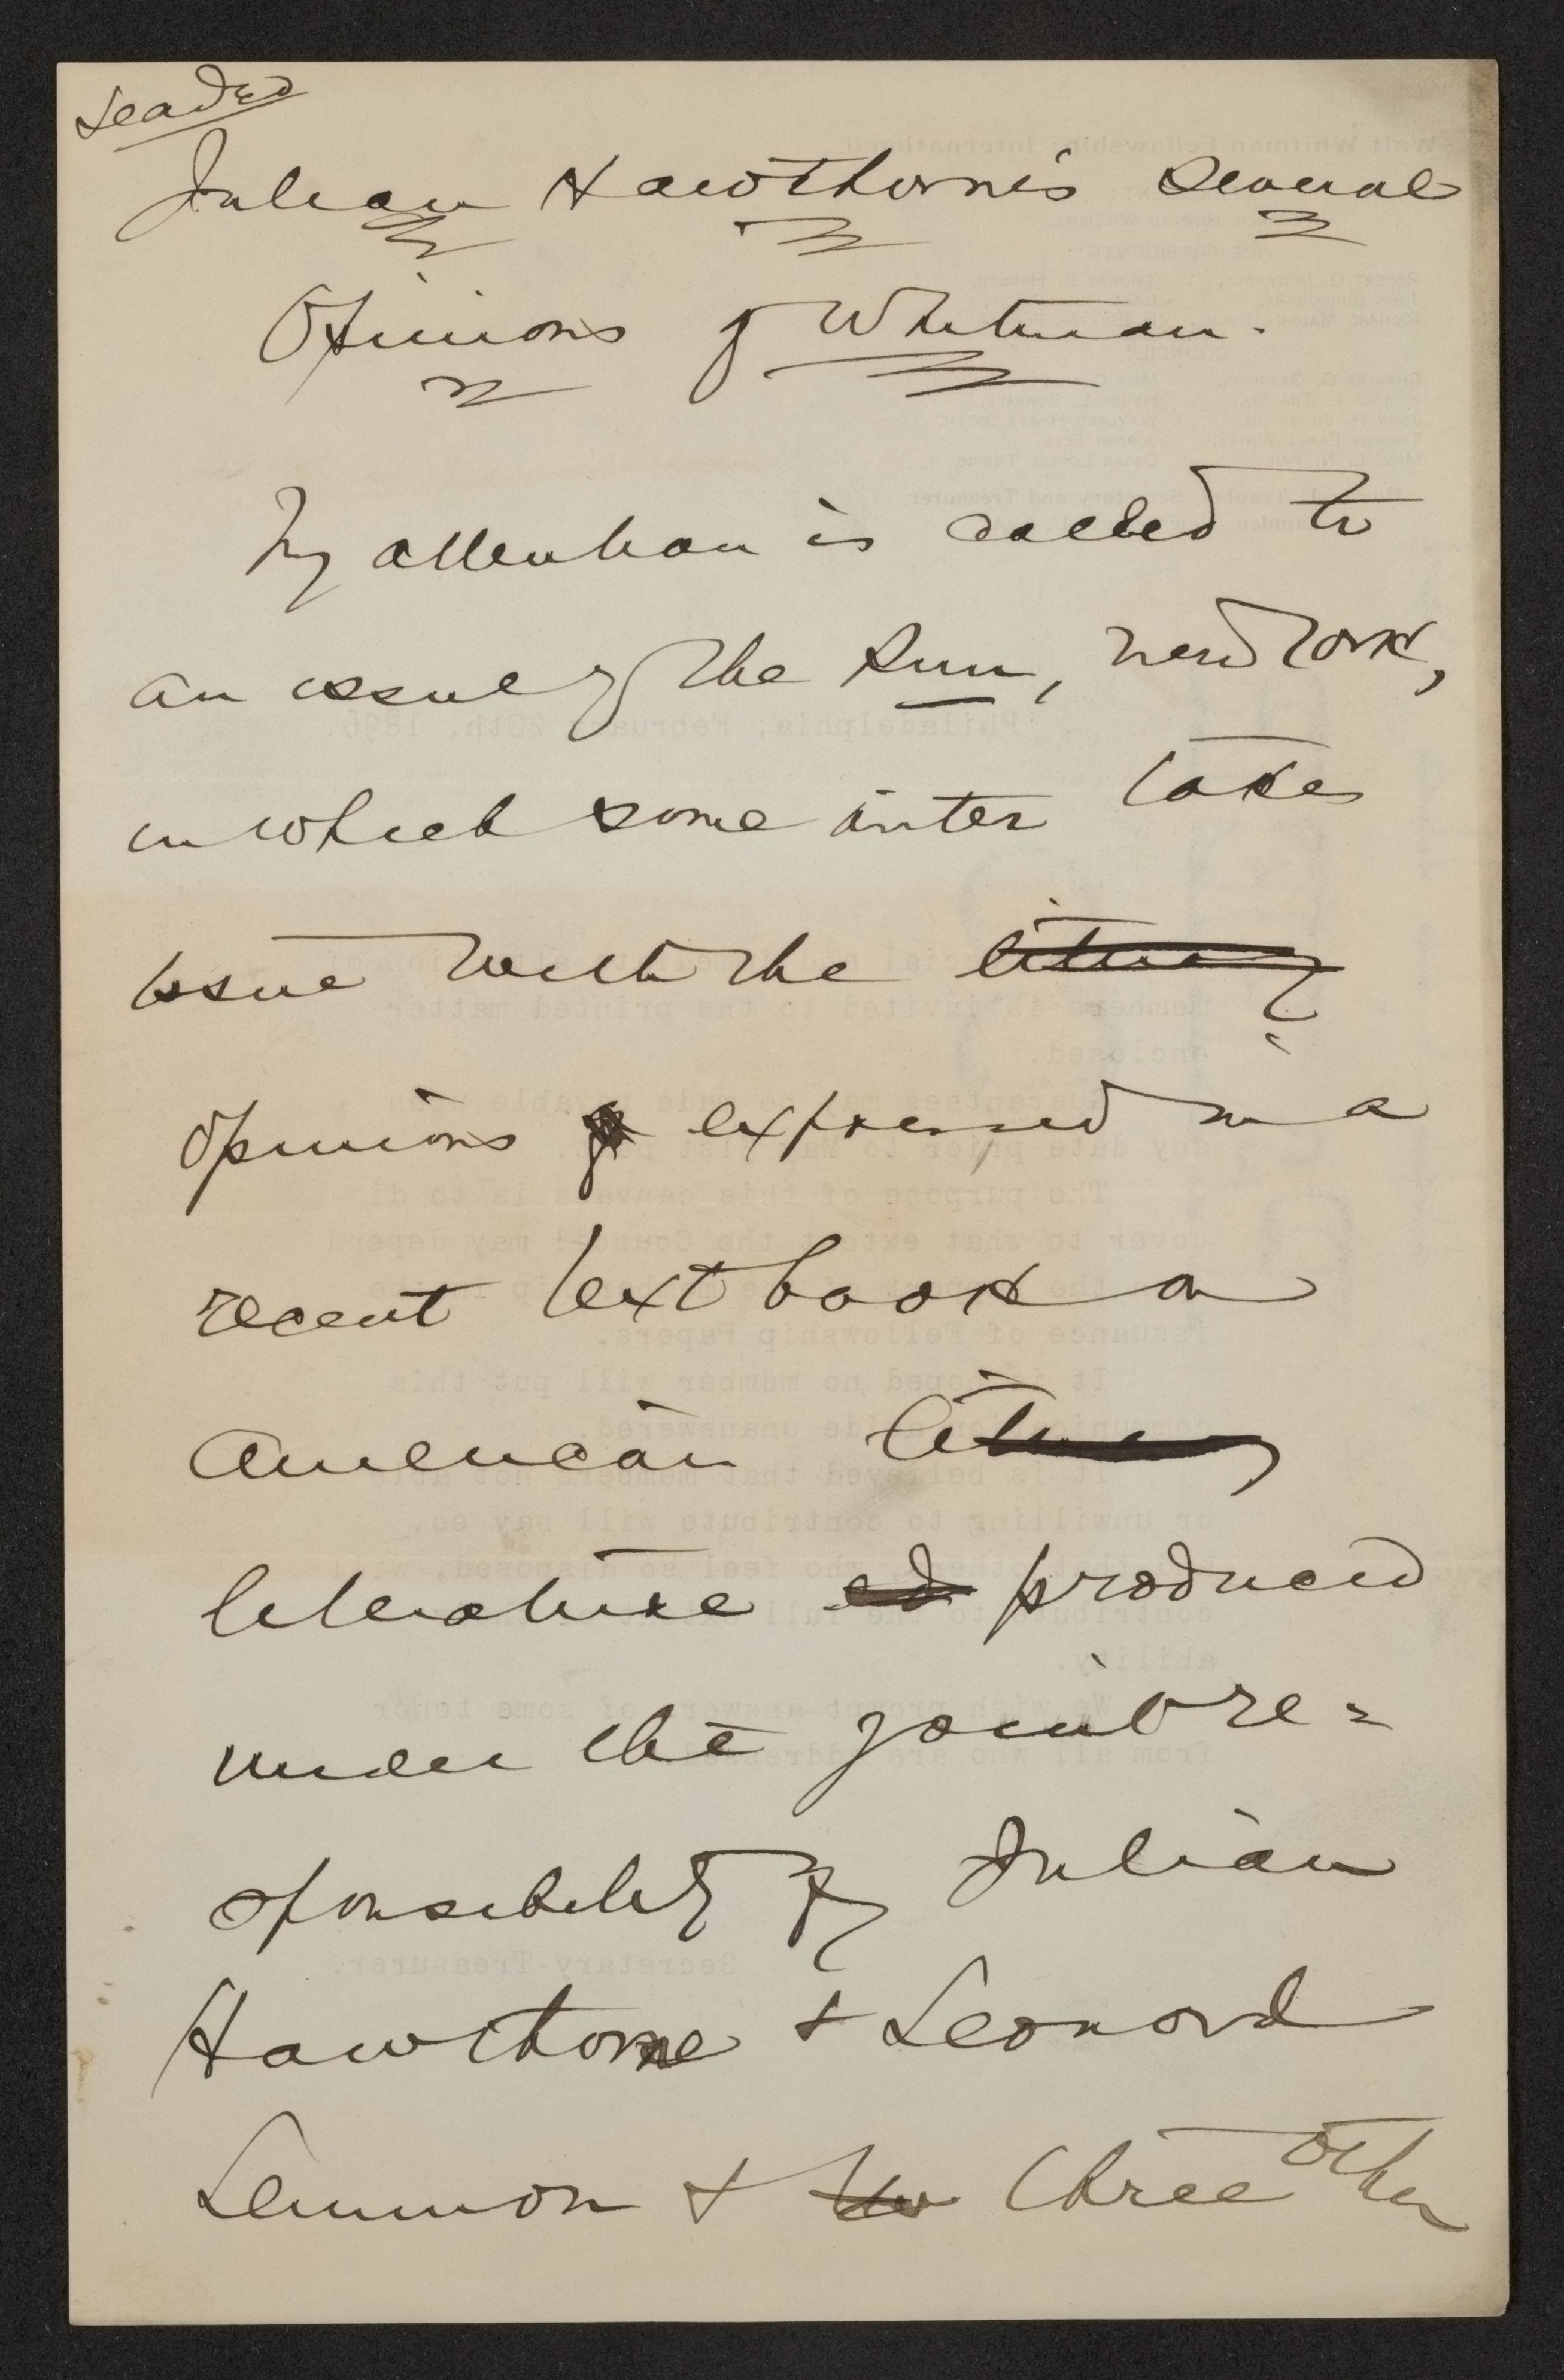 Leaded
Julian Hawthorne's Several
Opinions of Whitman.
My attention is called to
an issue of the Sun, New York,
in which some writer takes
issue with the literary
opinions expressed in a
recent text book on
American literary
literature ed produced
under the joint re=
sponsibility of Julian
Hawthorne + Leonard
Lemmon + two three other